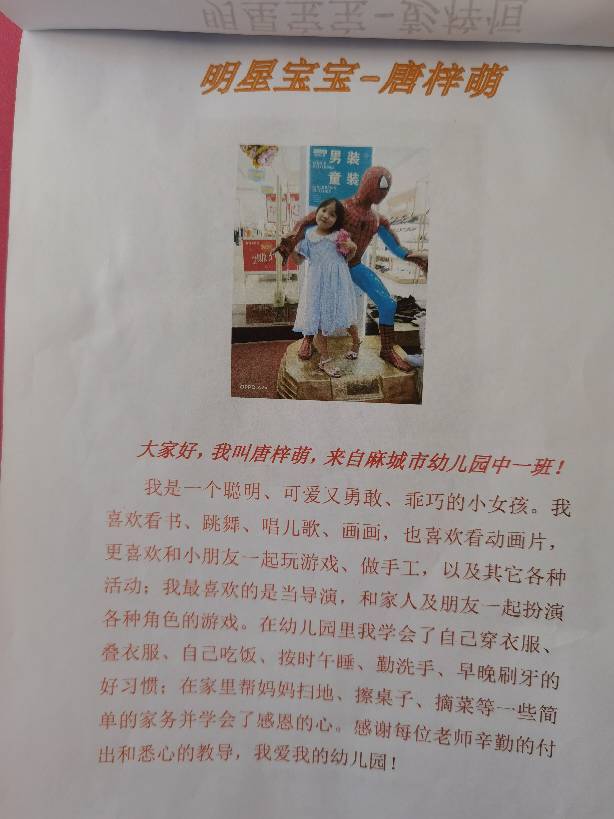 明星宝宝-彭梓恒
明星宝宝-唐梓萌
男装
童装
大家好，我叫唐梓萌，来自麻城市幼儿园中一班！
我是一个聪明、可爱又勇敢、乖巧的小女孩。我
喜欢看书、跳舞、唱儿歌、画画，也喜欢看动画片，
更喜欢和小朋友一起玩游戏、做手工，以及其它各种
活动；我最喜欢的是当导演，和家人及朋友一起扮演
各种角色的游戏。在幼儿园里我学会了自己穿衣服、
叠衣服、自己吃饭、按时午睡、勤洗手、早晚刷牙的
好习惯；在家里帮妈妈扫地、擦桌子、摘菜等一些简
单的家务并学会了感恩的心。感谢每位老师辛勤的付
出和悉心的教导，我爱我的幼儿园！